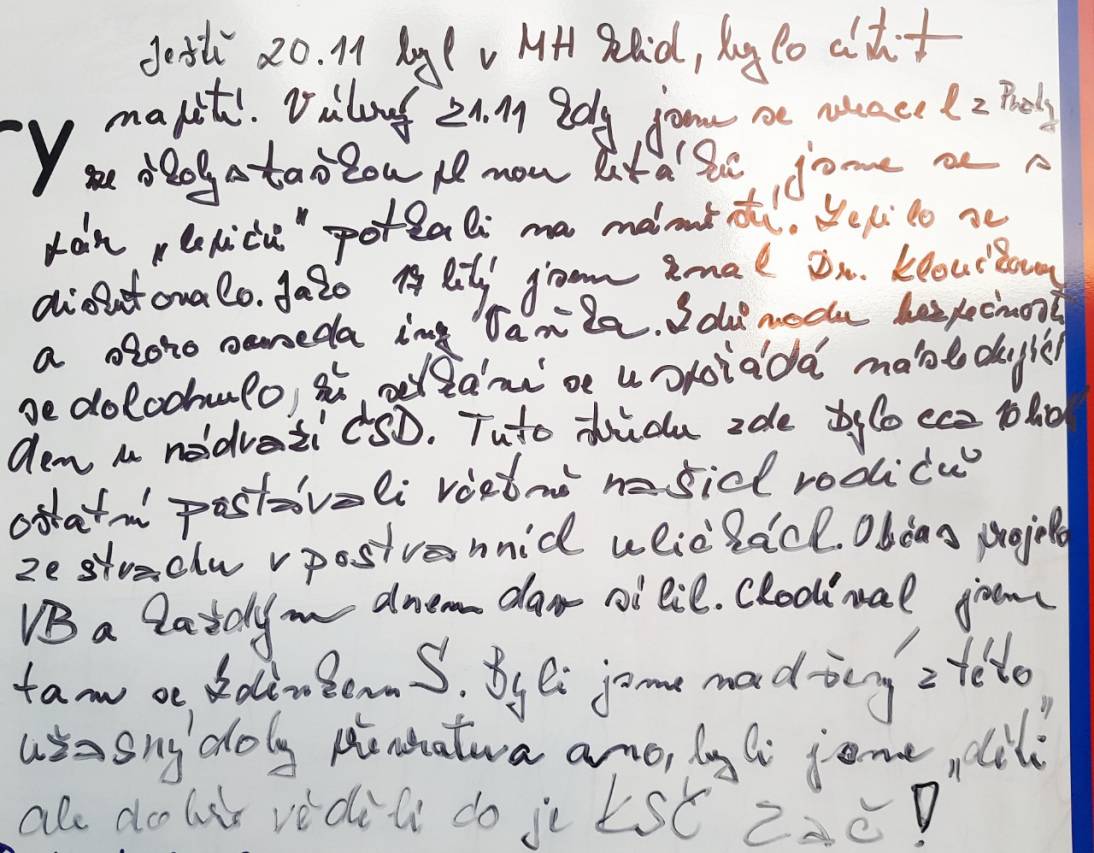 Ještě 20.11 byl v MH klid, bylo cítit
napětí. V úterý 21.11 kdy jsem se vracel z Prahy
ry
ze školy s taškou plnou letáků, jsme se s
pár „lepičů" potkali na náměstí. Lepilo se
diskutovalo. Jako 17 letý jsem znal Dr. Kloučkovou
a skoro souseda ing Vaňka. Z důvodu bezpečnosti
se dohodnulo, že setkání se uspořádá následující
den u nádraží ČSD. Tuto středu zde bylo cca 10 lidí
ostatní postávali včetně našich rodičů
ze strachu v postranních uličkách. Občas projela
VB a každým dnem dav sílil. Chodíval jsem
tam se Zdeňkem S. Byli jsme nadšený z této
úžasný doby převratu a ano, byli jsme „děti"
ale dobře věděli co je KSČ zač!